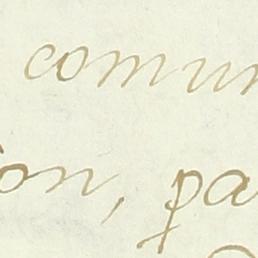 comun
on, pa